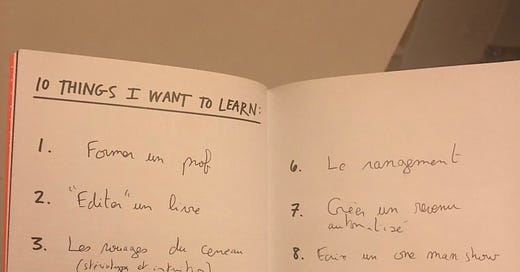 10 THINGS I WANT TO LEARN:
1. Former un prof
2. "Editer" un livre
3. Les rouages du cerveau
et
6. Le rangement
7. Créer un revenu
automatisé
8. Ecrire un one man show